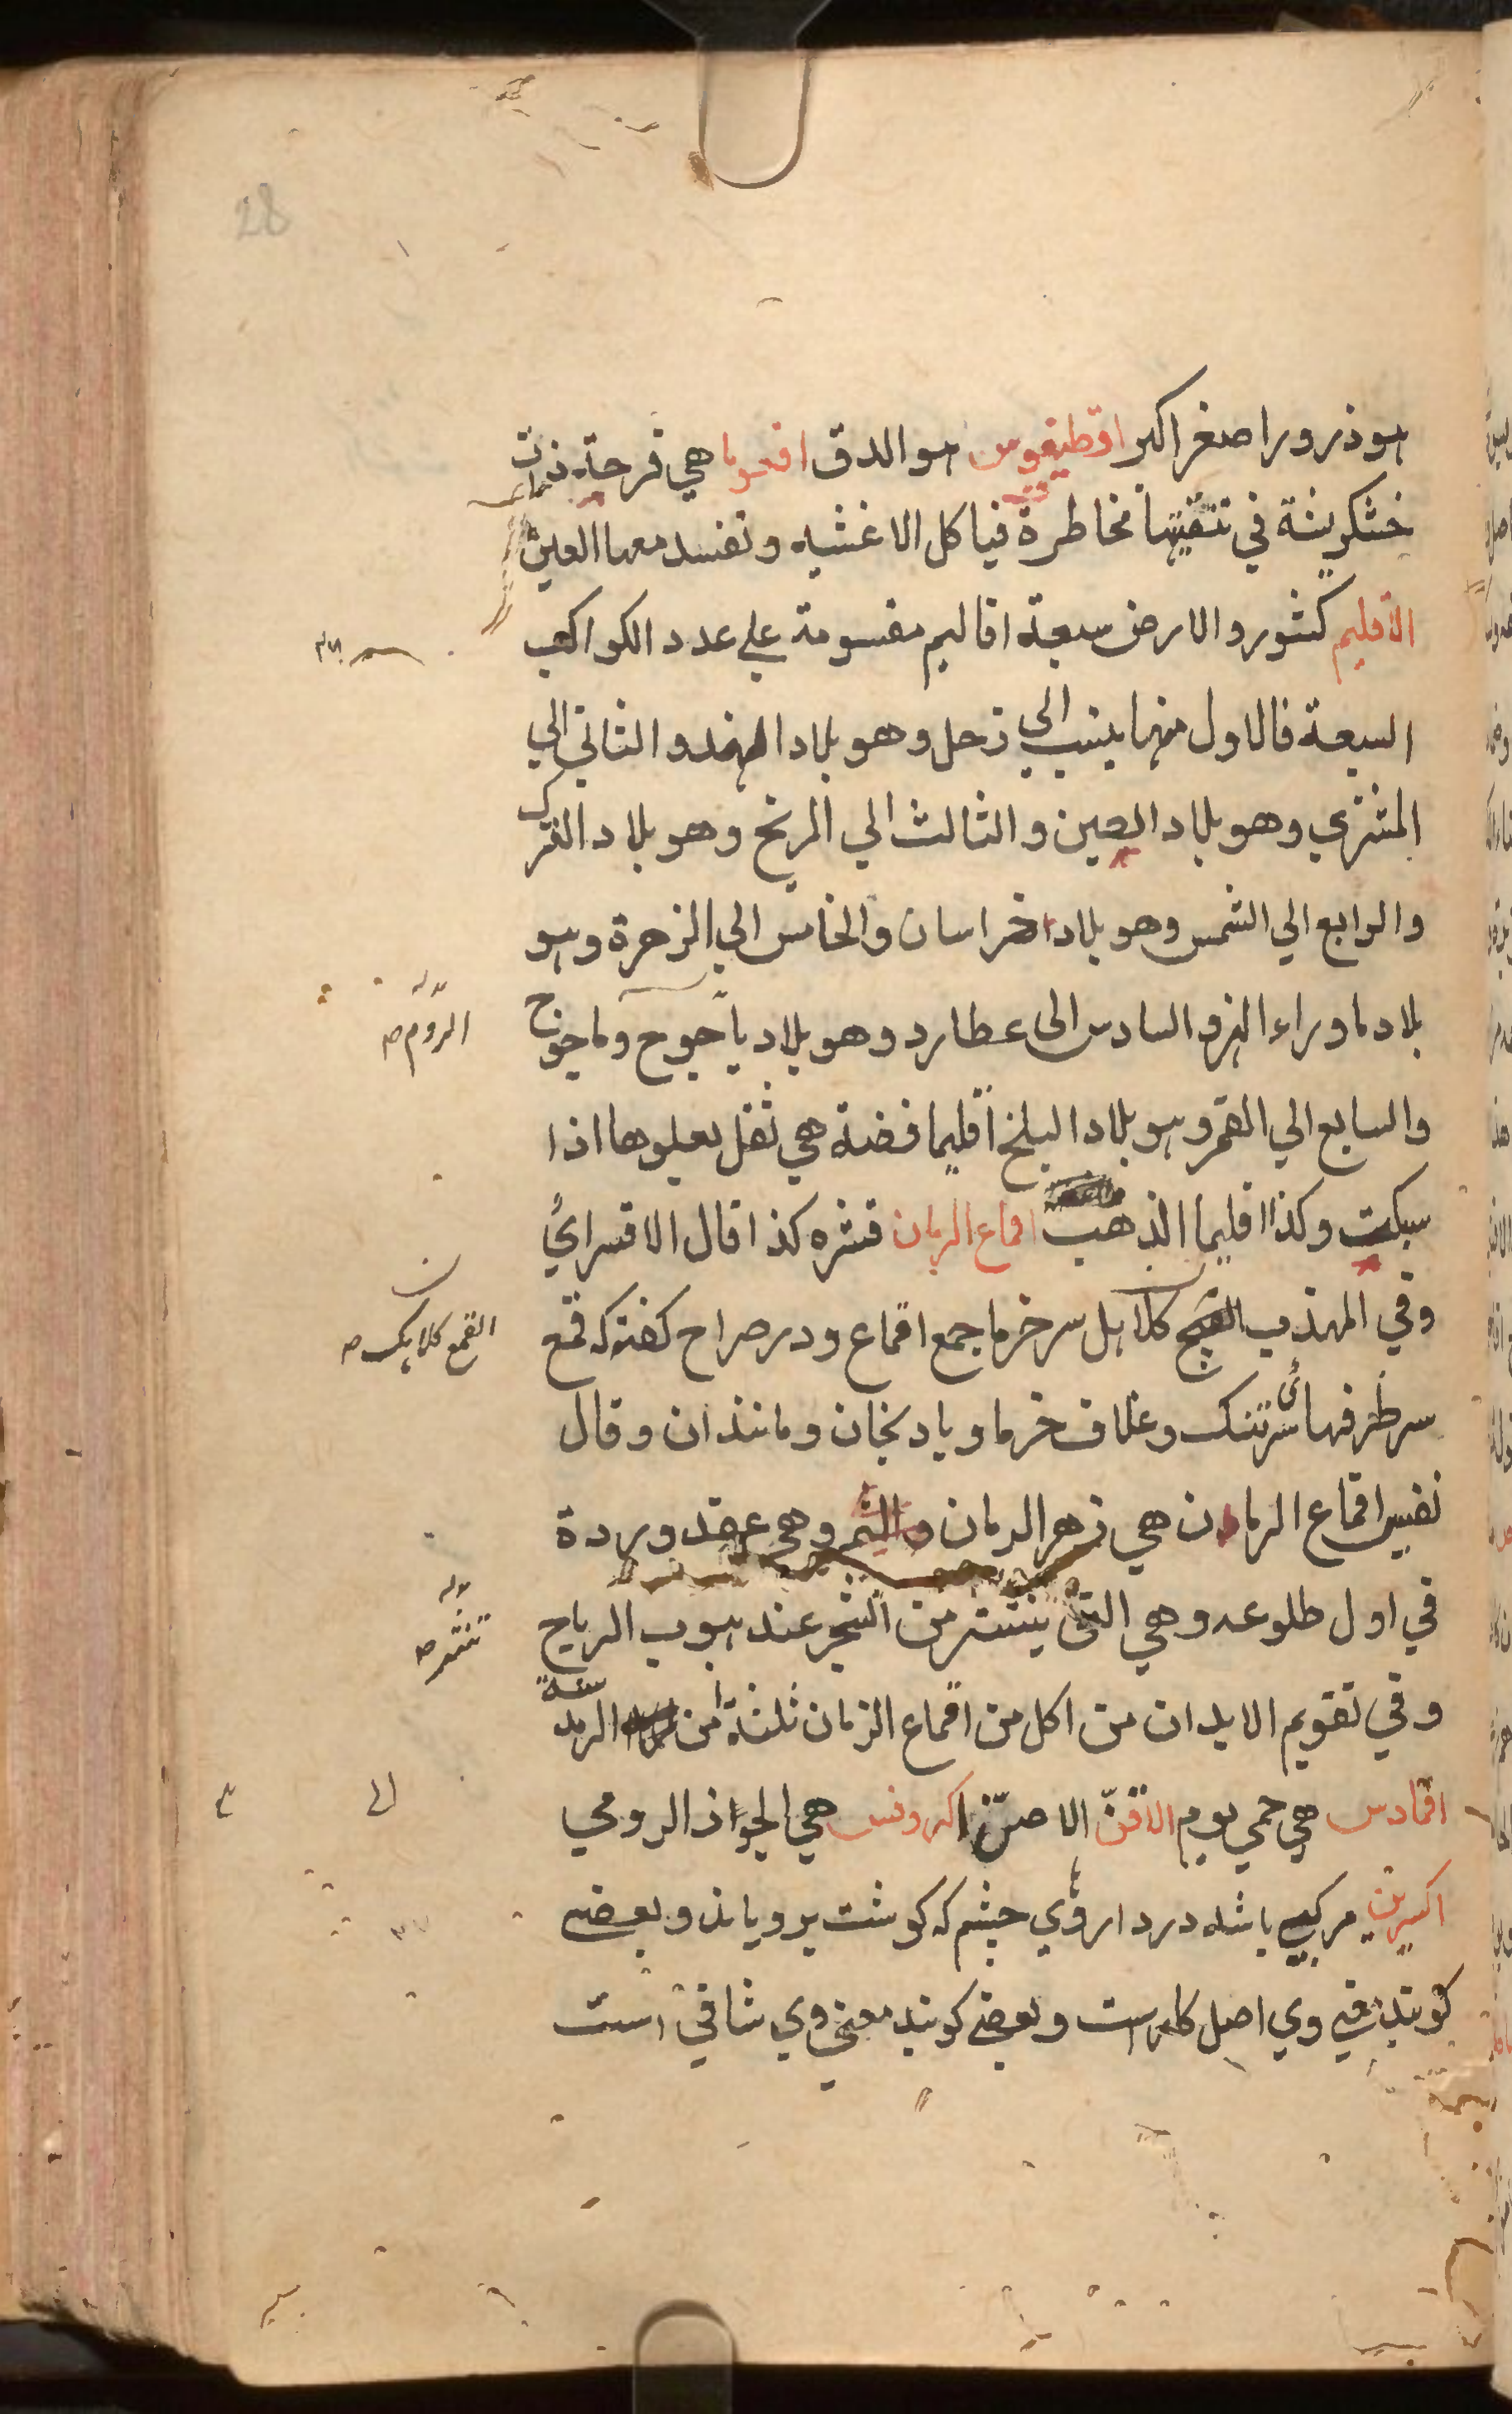 28
هو ذرور اصغر اكبر اقطيقوس هو الدق افحوما هي قرحة ذات
خشكريشة في تنقيتها مخاطرة فياكل الاغشيه وتفسد معها العين
الاقليم كشور والارض سبعة اقاليم مقسومة علي عدد الكواكب
السبعة فالاول منها ينسب الي زحل وهو بلاد الهند والثاني الي
المشتري وهو بلاد الصين والثالث الي المريخ وهو بلاد الترك
والرابع الي الشمس وهو بلاد خراسان والخامس الي الزهرة وهو
بلاد ماوراء النهر والسادس الى عطارد وهو بلاد ياجوج وماجوج
الروم صه
والسابع الي القمر وهو بلاد البلخ اقليما فضة هي ثفل يعلوها اذا
سبكت وكذا اقليما الذهب اقماع الرمان قشره كذا قال الاقسرائي
وفي المهذب القمع كلاهل سرخرما جمع اقماع ودر صراح كفته كه قمع
القمع كلاهك صه
سر ظرفهائي سرتنك وغلاف خرما وبادنجان ومانند ان وقال
نفيس اقماع الرمان هي زهر الرمان والثمر وهي عقد وردة
في اول طلوعه وهي التي ينتثر من الشجر عند هبوب الرياح
تنتثر صه
وفي تقويم الابدان من اكل من اقماع الرمان ثلثة امن الرمد سنة
اقمادس هي حمي يوم الاقنّ الاصنّ اكرونس هي الجواذ الرومي
اكسيرين مركبي باشد در داروي چشم كه كوشت بروياند وبعضي
كويند في وي اصل كلمه است وبعضي كويند معني وي شافي است